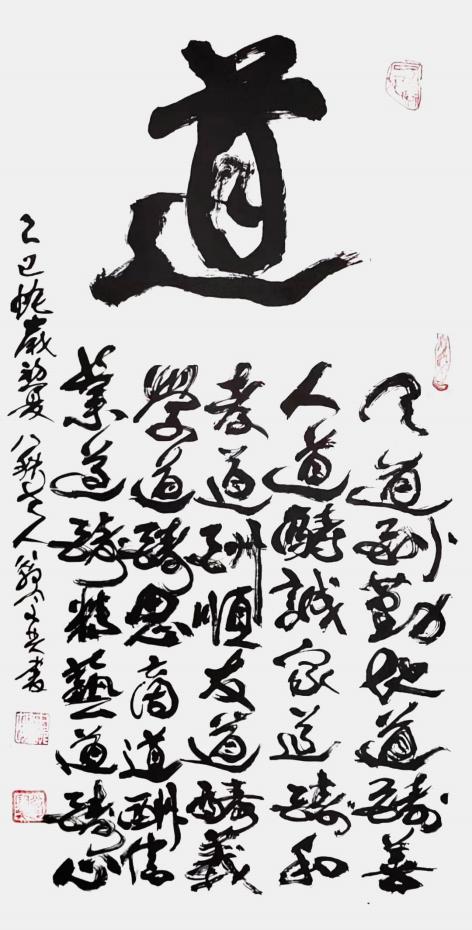 道
天道酬勤地道醻善
人道醻誠家道醻和
孝道酬順友道醻義
學道醻思商道酬信
業道醻精藝道醻心
乙巳蛇歲初夏八老人翁書